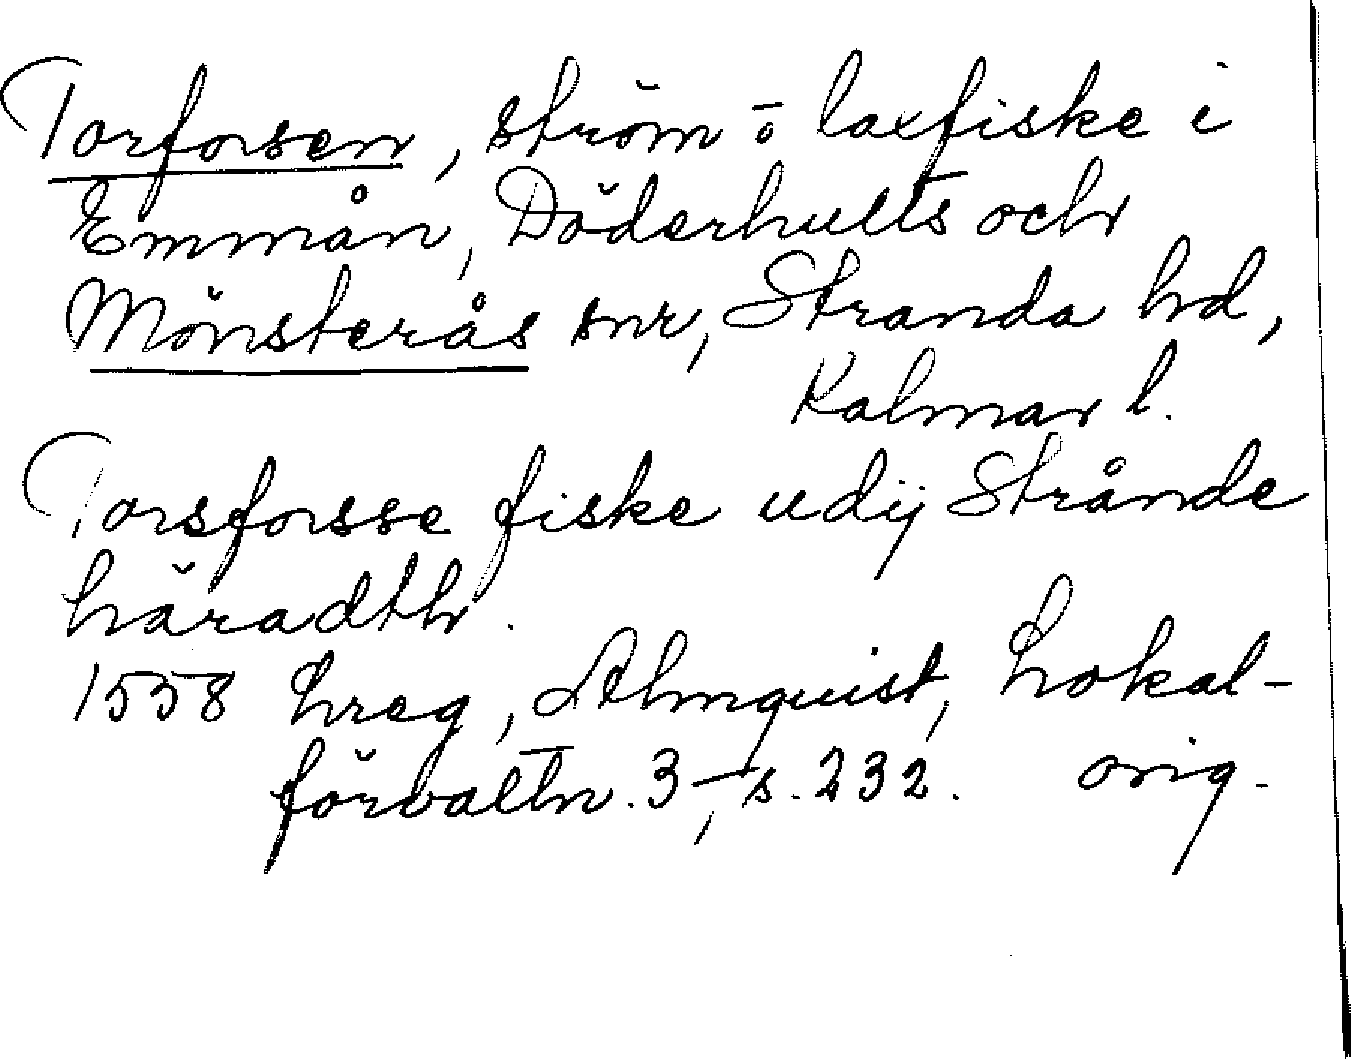 Torforsen, ström o. laxfiske i
Emmån, Döderhults och
Mönsterås snr, Stranda hd,
Kalmar l.
Torsforsse fiske udij Strånde
häradth.
1558 hreg, Almquist, Lokal-
förvaltn. 3, s. 232. orig.